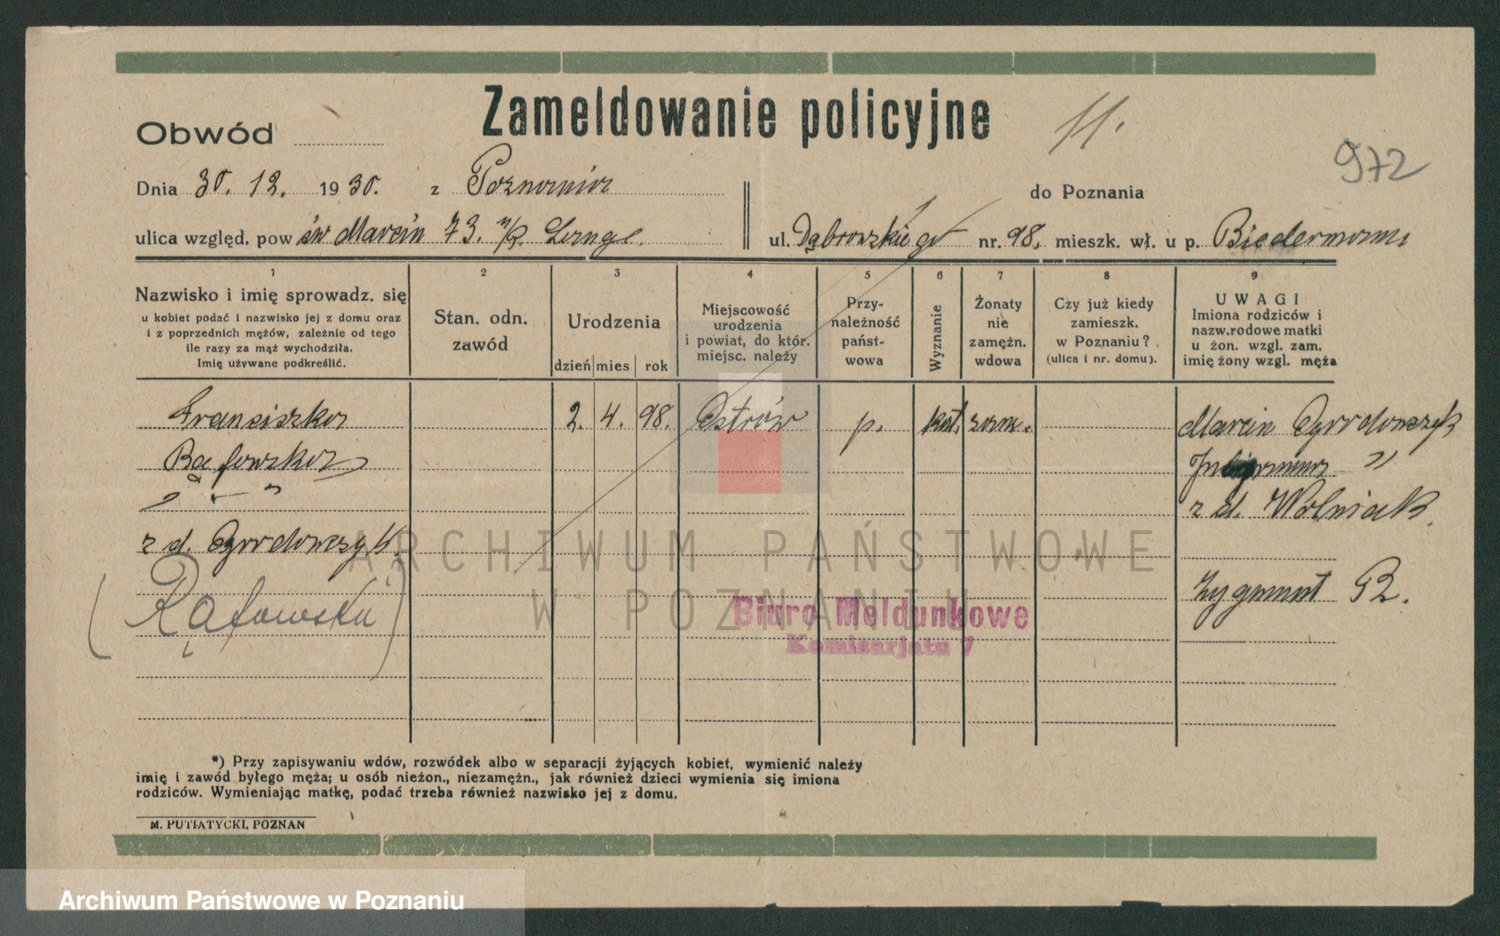 Zameldowanie policyjne
11.
972
Obwód
Dnia 30. 12. 1930. z Poznania
do Poznania
ulica względ. pow św Marcin 73. u p.
ul. Dąbrowskiego nr. 98. mieszk. wł. u p. Biedermann
1 2 3 4 5 6 7 8 9
Nazwisko i imię sprowadz. się
u kobiet podać i nazwisko jej z domu oraz
i z poprzednich mężów, zależnie od tego
ile razy za mąż wychodziła.
Imię używane podkreślić.
Stan. odn.
zawód
Urodzenia
dzień mies rok
Miejscowość
urodzenia
i powiat, do któr.
miejsc. należy
Przy-
należność
państ-
wowa
Wyznanie
Żonaty
nie
zamężn.
wdowa
Czy już kiedy
zamieszk.
w Poznaniu?
(ulica i nr. domu).
UWAGI
Imiona rodziców i
nazw.rodowe matki
u żon. wzgl. zam.
imię żony wzgl. męża
Franciszka 2. 4. 98. Ostrów p. kat. zam. Marcin Ogrodowczyk
Rąfowska "
" — "
z d. Wolniak
z d. Ogrodowczyk.
(Rąfowska)
Zygmunt R.
Biuro Meldunkowe
Komisarjatu 7
ARCHIWUM PAŃSTWOWE
W POZNANIU
*) Przy zapisywaniu wdów, rozwódek albo w separacji żyjących kobiet, wymienić należy
imię i zawód byłego męża; u osób nieżon., niezamężn., jak również dzieci wymienia się imiona
rodziców. Wymieniając matkę, podać trzeba również nazwisko jej z domu.
M. PUTIATYCKI, POZNAN
Archiwum Państwowe w Poznaniu